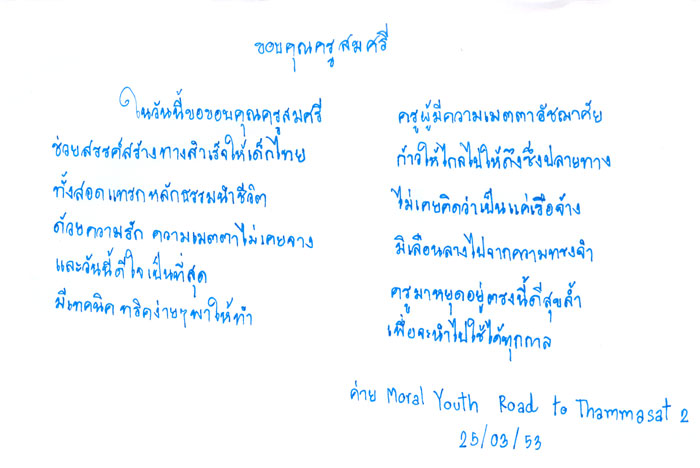 ขอบคุณครูสมศรี
ในวันนี้ขอขอบคุณครูสมศรี
ครูผู้มีความเมตตาอัชฌาศัย
ช่วยสรรค์สร้างทางสำเร็จให้เด็กไทย
ก้าวให้ไกลไปให้ถึงซึ่งปลายทาง
ทั้งสอดแทรกหลักธรรมนำชีวิต
ไม่เคยคิดว่าเป็นแค่เรือจ้าง
ด้วยความรัก ความเมตตาไม่เคยจาง
มิเลือนลางไปจากความทรงจำ
และวันนี้ดีใจเป็นที่สุด
ครูมาหยุดอยู่ตรงนี้ดีสุขล้ำ
มีเทคนิค ทริคง่ายๆพาให้ทำ
เพื่อจะนำไปใช้ได้ทุกกาล
ค่าย Moral Youth Road to Thammasat 2
25/03/53